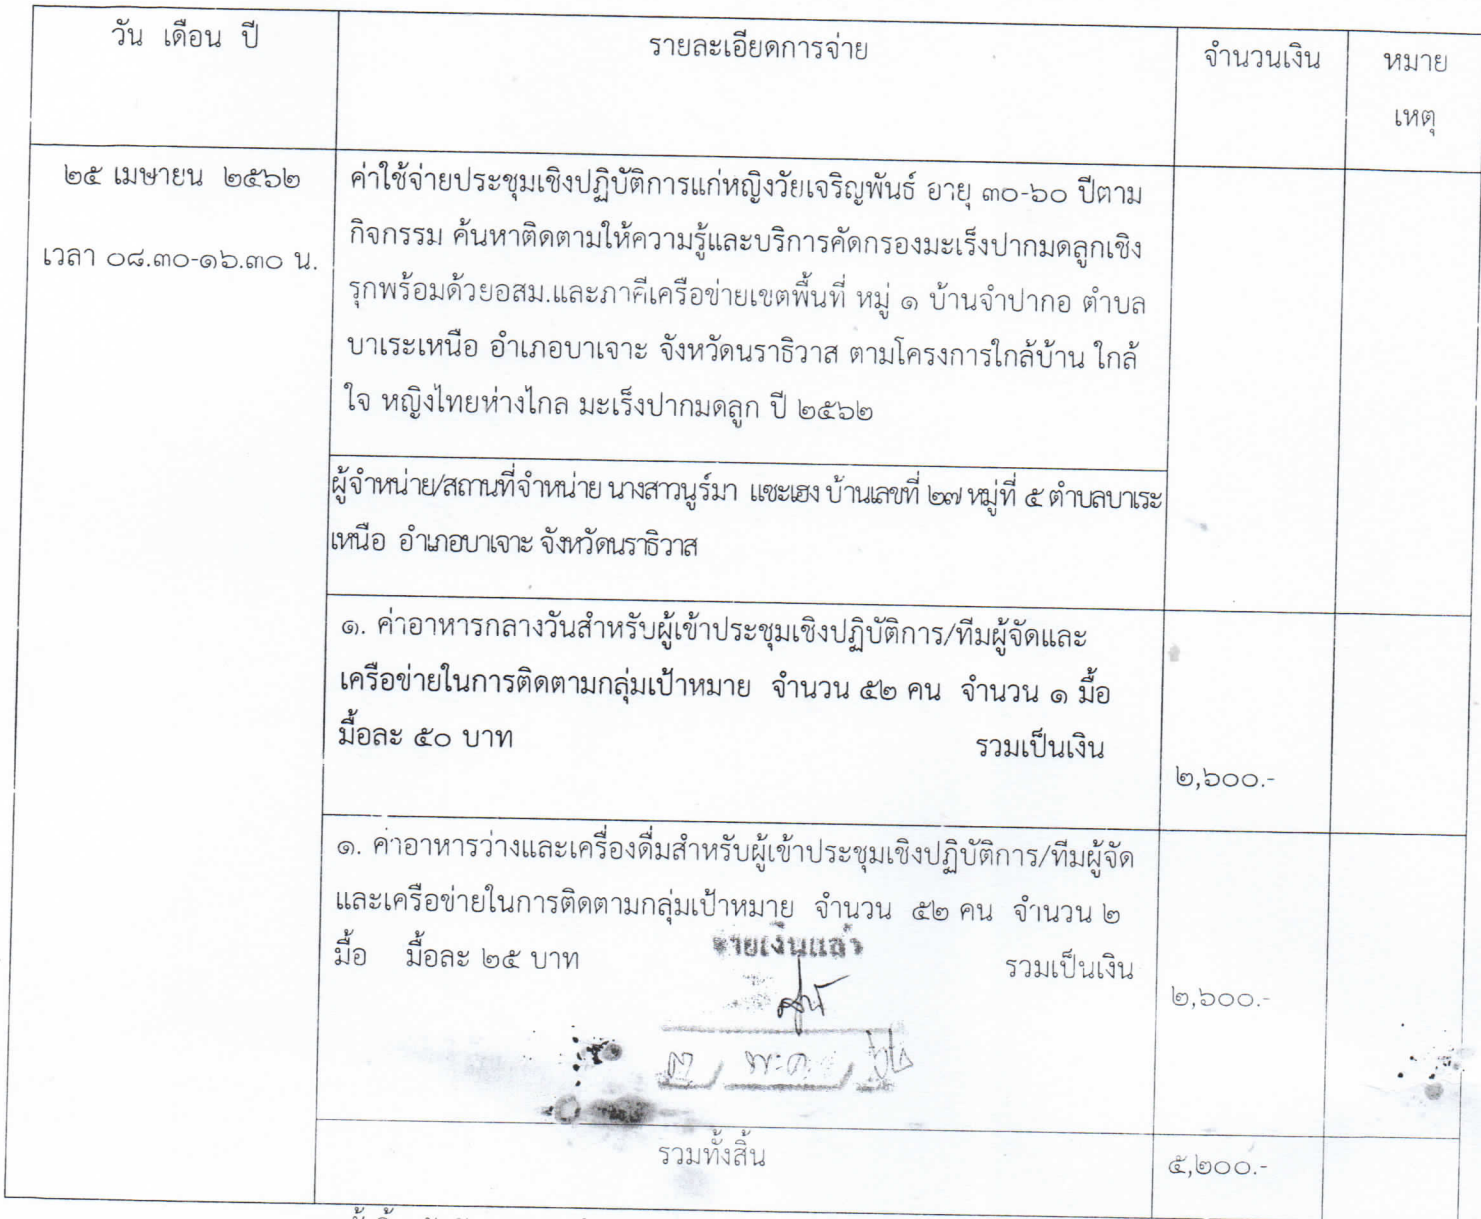 วัน เดือน ปี
รายละเอียดการจ่าย
จำนวนเงิน
หมาย
เหตุ
๒๕ เมษายน ๒๕๖๒
เวลา ๐๘.๓๐-๑๖.๓๐ น.
ค่าใช้จ่ายประชุมเชิงปฏิบัติการแก่หญิงวัยเจริญพันธ์ อายุ ๓๐-๖๐ ปีตาม
กิจกรรม ค้นหาติดตามให้ความรู้และบริการคัดกรองมะเร็งปากมดลูกเชิง
รุกพร้อมด้วยอสม.และภาคีเครือข่ายเขตพื้นที่ หมู่ ๑ บ้านจำปากอ ตำบล
บาเระเหนือ อำเภอบาเจาะ จังหวัดนราธิวาส ตามโครงการใกล้บ้าน ใกล้
ใจ หญิงไทยห่างไกล มะเร็งปากมดลูก ปี ๒๕๖๒
ผู้จำหน่าย/สถานที่จำหน่าย นางสาวนูร์มา แซะเฮง บ้านเลขที่ ๒๗ หมู่ที่ ๕ ตำบลบาเระ
เหนือ อำเภอบาเจาะ จังหวัดนราธิวาส
๑. ค่าอาหารกลางวันสำหรับผู้เข้าประชุมเชิงปฏิบัติการ/ทีมผู้จัดและ
เครือข่ายในการติดตามกลุ่มเป้าหมาย จำนวน ๕๒ คน จำนวน ๑ มื้อ
มื้อละ ๕๐ บาท รวมเป็นเงิน
๒,๖๐๐.-
๑. ค่าอาหารว่างและเครื่องดื่มสำหรับผู้เข้าประชุมเชิงปฏิบัติการ/ทีมผู้จัด
และเครือข่ายในการติดตามกลุ่มเป้าหมาย จำนวน ๕๒ คน จำนวน ๒
มื้อ มื้อละ ๒๕ บาท รวมเป็นเงิน
๒,๖๐๐.-
จ่ายเงินแล้ว
พ.ค.
รวมทั้งสิ้น
๕,๒๐๐.-